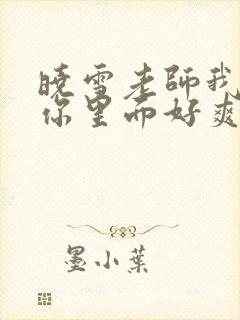 曉雪老師我
你里面好爽
墨小葉